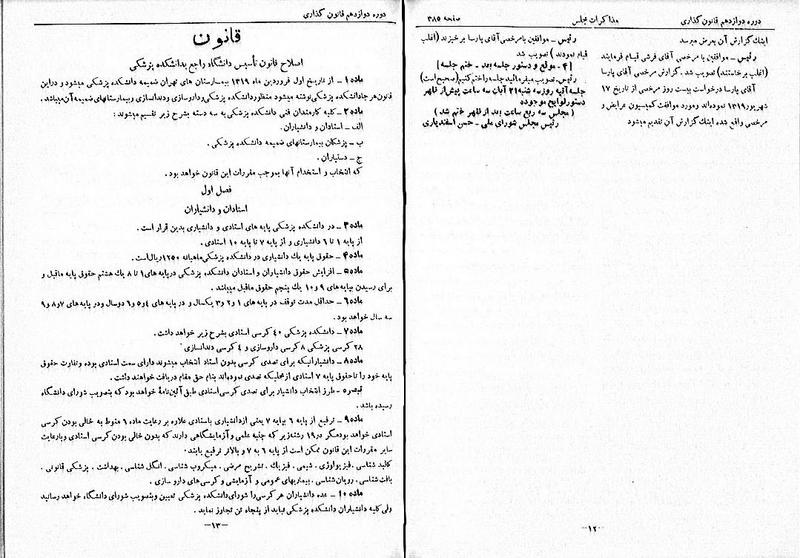 دوره دوازدهم قانون گذاری
مذاکرات مجلس
صفحه ۳۸۵
اینك گزارش آن بعرض میرسد
رئیس ـ موافقین با مرخصی آقای فرشی قیام فرمایند
(اغلب برخاستند) تصویب شد. گزارش مرخصی آقای پارسا
آقای پارسا درخواست بیست روز مرخصی از تاریخ ۱۷
شهریور ۱۳۱۹ نموده‌اند و مورد موافقت کمیسیون عرایض و
مرخصی واقع شده اینك گزارش آن تقدیم میشود
رئیس ـ موافقین با مرخصی آقای پارسا برخیزند (اغلب
قیام نمودند) تصویب شد
[ ۴ ـ موقع و دستور جلسه بعد ـ ختم جلسه ]
رئیس ـ تصویب میفرمائید جلسه را ختم کنیم (صحیح است)
جلسه آتیه روز سه شنبه ۲۱ آبان سه ساعت پیش از ظهر
دستور لوایح موجوده
( مجلس سه ربع ساعت بعد از ظهر ختم شد )
رئیس مجلس شورای ملی ـ حسن اسفندیاری
ـ۱۲ـ
دوره دوازدهم قانون گذاری
قانون
اصلاح قانون تأسیس دانشگاه راجع بدانشکده پزشکی
ماده ۱ ـ از تاریخ اول فروردین ماه ۱۳۱۹ بیمارستان های تهران ضمیمه دانشکده پزشکی میشود و در این
قانون هر جا دانشکده پزشکی نوشته میشود منظور دانشکده پزشکی و داروسازی و دندانسازی و بیمارستانهای ضمیمه آن میباشد.
ماده ۲ ـ کلیه کارمندان فنی دانشکده پزشکی به سه دسته بشرح زیر تقسیم میشوند :
الف ـ استادان و دانشیاران.
ب ـ پزشکان بیمارستانهای ضمیمه دانشکده پزشکی .
ج ـ دستیاران .
که انتخاب و استخدام آنها بموجب مقررات این قانون خواهد بود .
فصل اول
استادان و دانشیاران
ماده ۳ ـ در دانشکده پزشکی پایه های استادی و دانشیاری بدین قرار است .
از پایه ۱ تا ۶ دانشیاری و از پایه ۷ تا پایه ۱۰ استادی .
ماده ۴ ـ حقوق پایه یك دانشیاری در دانشکده پزشکی ماهیانه ۱۲۵۰ ریال است .
ماده ۵ ـ افزایش حقوق دانشیاران و استادان دانشکده پزشکی در پایه های ۱ تا ۸ یك هشتم حقوق پایه ماقبل و
برای رسیدن بپایه های ۹ و ۱۰ یك پنجم حقوق ماقبل میباشد .
ماده ۶ ـ حداقل مدت توقف در پایه های ۱ و ۲ و ۳ یکسال و در پایه های ۴ و ۵ و ۶ دوسال و در پایه های ۷ و ۸ و ۹
سه سال خواهد بود .
ماده ۷ ـ دانشکده پزشکی ۴۰ کرسی استادی بشرح زیر خواهد داشت .
۲۸ کرسی پزشکی ۸ کرسی داروسازی و ۴ کرسی دندانسازی
ماده ۸ ـ دانشیارانیکه برای تصدی کرسی بدون استاد انتخاب میشوند دارای سمت استادی بوده و تفاوت حقوق
پایه خود را تا حقوق پایه ۷ استادی از محلیکه تصدی نموده‌اند بنام حق مقام دریافت خواهند داشت .
تبصره ـ طرز انتخاب دانشیار برای تصدی کرسی استادی طبق آئین‌نامه خواهد بود که بتصویب شورای دانشگاه
رسیده باشد .
ماده ۹ ـ ترفیع از پایه ۶ بپایه ۷ یعنی از دانشیاری باستادی علاوه بر رعایت ماده ۶ منوط به خالی بودن کرسی
استادی خواهد بود مگر در ۱۹ رشته زیر که جنبه علمی و آزمایشگاهی دارند که بدون خالی بودن کرسی استادی و با رعایت
سایر مقررات این قانون ممکن است از پایه ۶ به ۷ و بالاتر ترفیع یابند.
کالبد شناسی ، فیزیولوژی ، شیمی ، فیزیك ، تشریح مرضی ، میکروب شناسی ، انگل شناسی ، بهداشت ، پزشکی قانونی ،
بافت شناسی ، رویان شناسی ، بیماریهای عمومی و آزمایشی و کرسی های دارو سازی .
ماده ۱۰ ـ عده دانشیاران هر کرسی را شورای دانشکده پزشکی تعیین و بتصویب شورای دانشگاه خواهد رسانید
ولی کلیه دانشیاران دانشکده پزشکی نباید از پنجاه تن تجاوز نماید .
ـ۱۳ـ